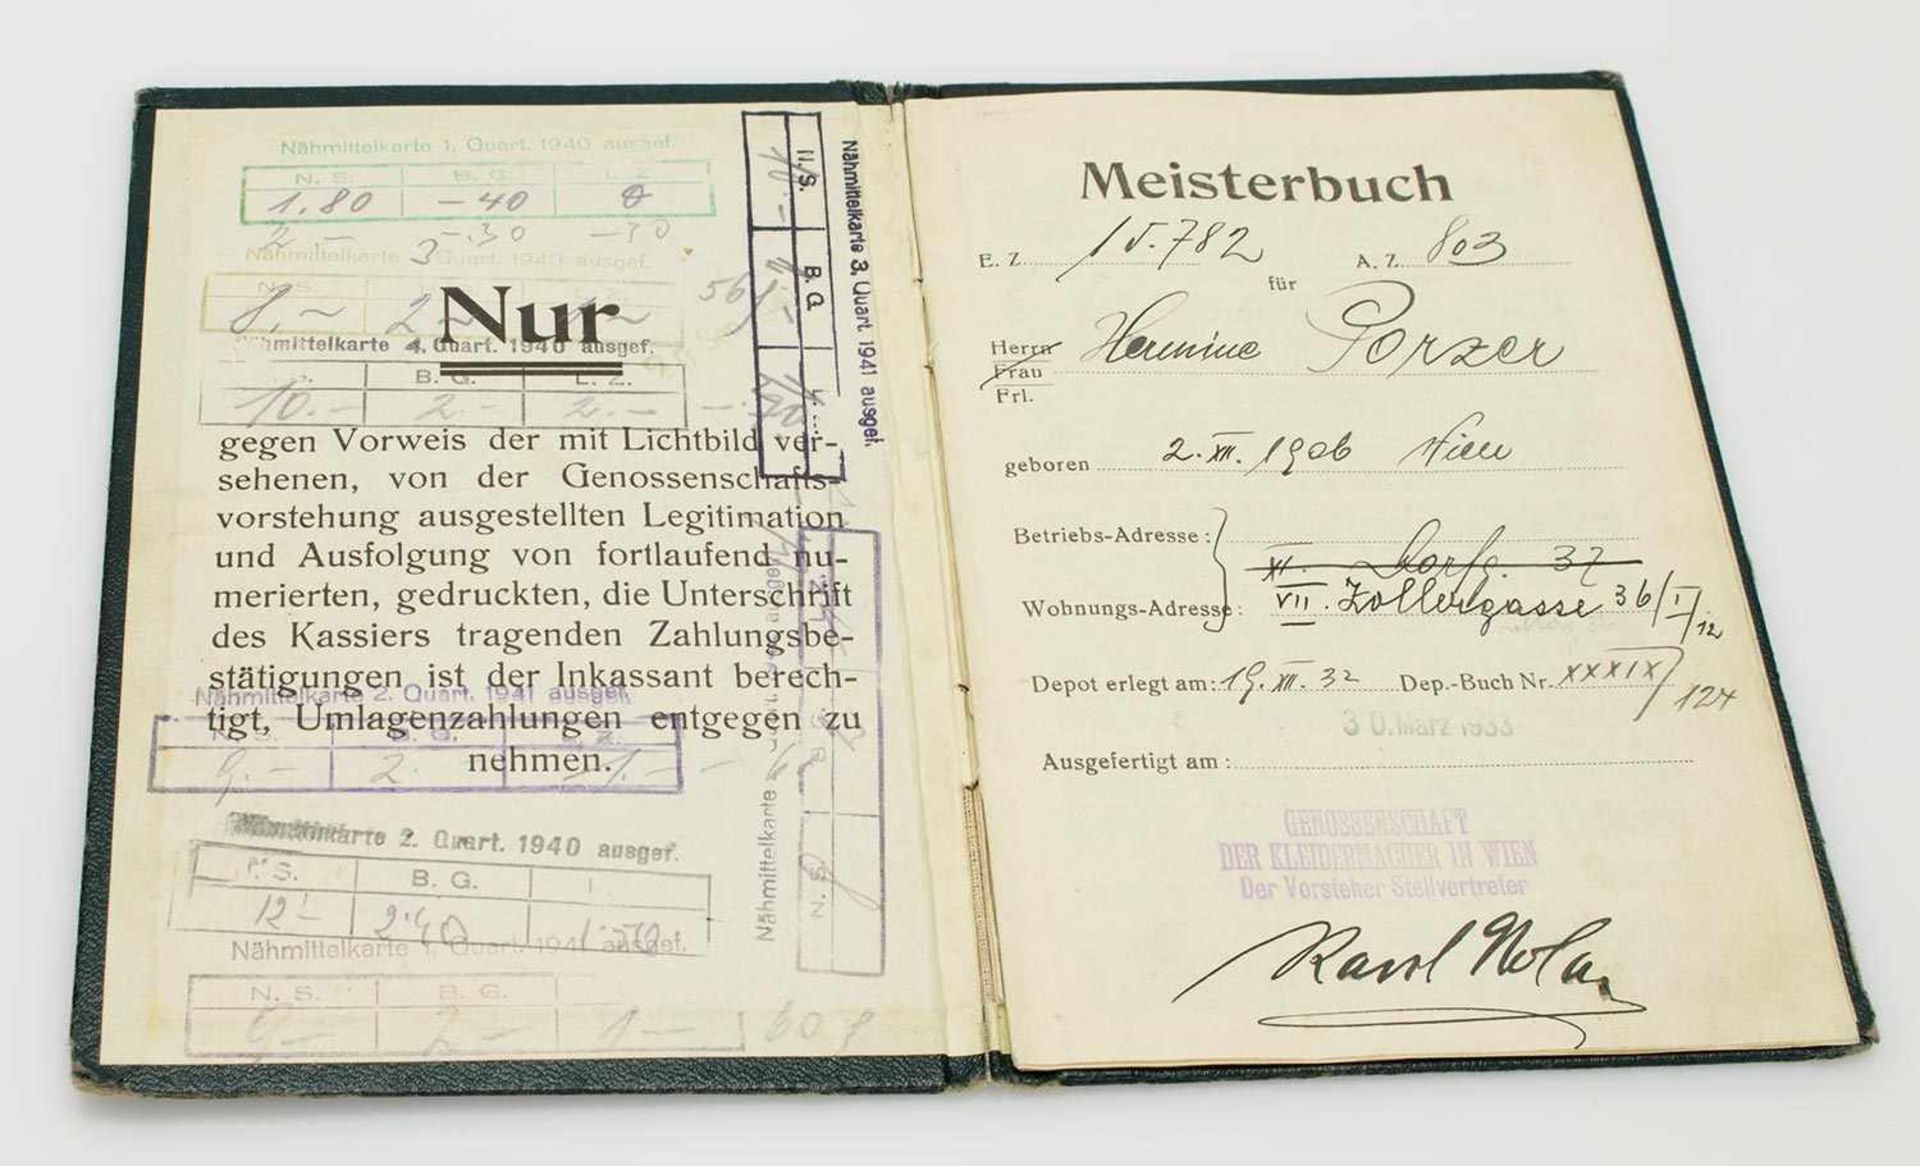 Nähmittelkarte 1. Quart. 1940 ausgef.
N. S. B. G. L. Z.
1.80 -40 0
2.- -.30 -30
Nähmittelkarte 3 Quart. 1940 ausgef.
N. S.
8.~ 2~
Nur
Nähmittelkarte 4. Quart. 1940 ausgef.
B. G. L. Z.
10.- 2.- 2.-
gegen Vorweis der mit Lichtbild ver-
sehenen, von der Genossenschafts-
vorstehung ausgestellten Legitimation
und Ausfolgung von fortlaufend nu-
merierten, gedruckten, die Unterschrift
des Kassiers tragenden Zahlungsbe-
stätigungen ist der Inkassant berech-
tigt, Umlagenzahlungen entgegen zu
nehmen.
Nähmittelkarte 2. Quart. 1941 ausgef.
N. S. B. G. L. Z.
9.- 2. 1.-
Nähmittelkarte 2. Quart. 1940 ausgef.
N. S. B. G.
12- 2.40
Nähmittelkarte 1. Quart. 1941 ausgef.
N. S. B. G.
9- 2- 1- 60
Nähmittelkarte 3. Quart. 1941 ausgef.
N. S. B. G.
10.-
Nähmittelkarte
N. S.
Meisterbuch
E. Z. 15.782 A. Z. 803
für
Herrn Hermine Porzer
Frau
Frl.
geboren 2. XII. 1906 Wien
Betriebs-Adresse:
XI. Dorfg. 37
Wohnungs-Adresse: VII. Zollergasse 36/I/12
Depot erlegt am: 19. XII. 32 Dep.-Buch Nr. XXXIX/124
30. März 1933
Ausgefertigt am:
GENOSSENSCHAFT
DER KLEIDERMACHER IN WIEN
Der Vorsteher Stellvertreter